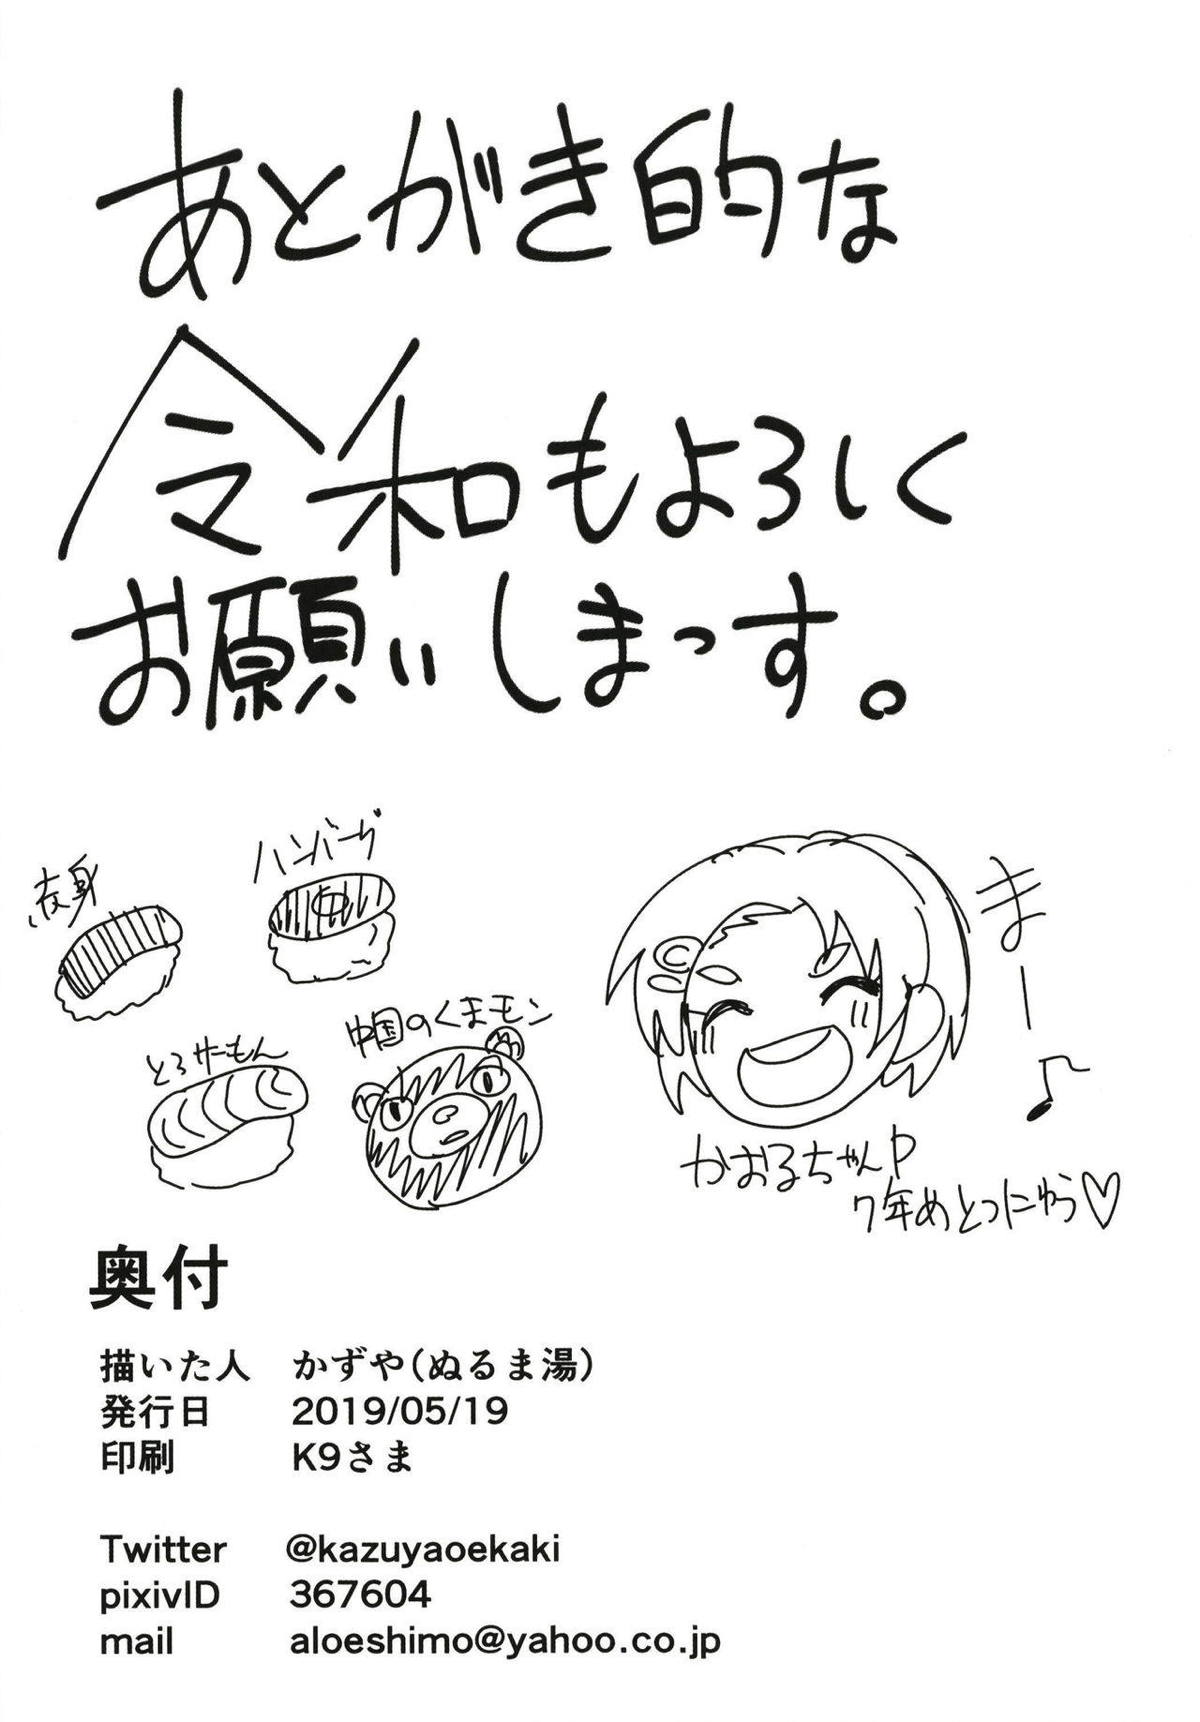 あとがき的な
令和もよろしく
お願いしまっす。
ハンバーグ
とろサーもん
中国のくまモン
まー♪
かおるちゃんP
7年めとつにゅう♡
奥付
描いた人 かずや(ぬるま湯)
発行日 2019/05/19
印刷 K9さま
Twitter @kazuyaoekaki
pixivID 367604
mail aloeshimo@yahoo.co.jp